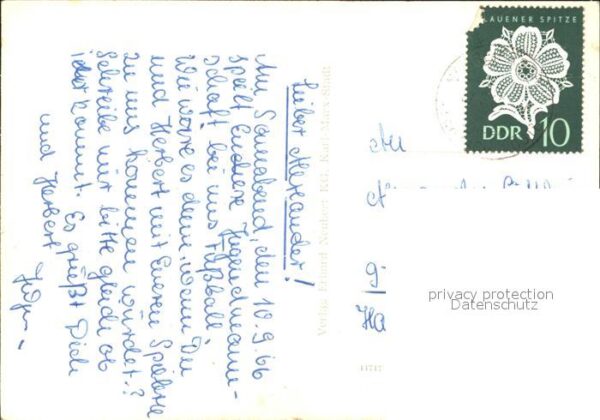 Lieber Alexander!
Am Sonnabend, den 10.9.66
spielt Eu[...] Jugendmann-
schaft bei uns Fußball.
Wie wäre es denn, wenn Du
und Herbert mit Eueren Spielern
zu uns kommen würdet?
Schreibe mir bitte gleich ob
ihr kommt. Es grüßt Dich
und Herbert
Verlag Erhard Neubert KG, Karl-Marx-Stadt
PLAUENER SPITZE
DDR 10
An
9
Ha
privacy protection
Datenschutz